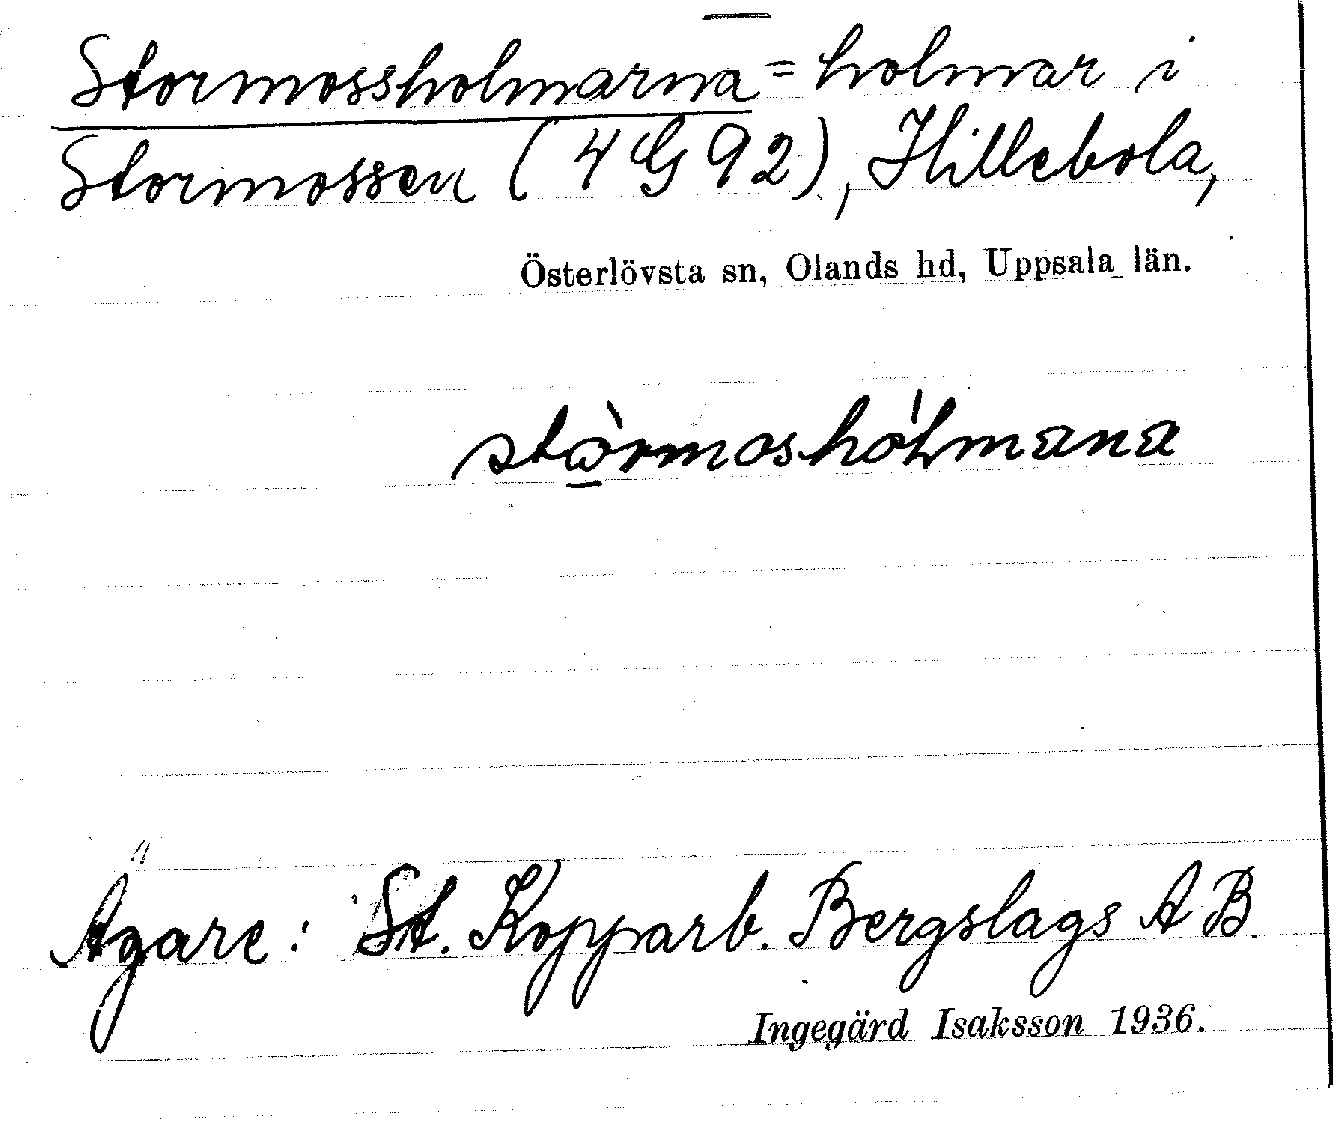 Stormossholmarna = holmar i
Stormossen (4 G 92), Hillebola,
Österlövsta sn, Olands hd, Uppsala län.
stò̱rmoshólmana
Ägare: St. Kopparb. Bergslags A B.
Ingegärd Isaksson 1936.